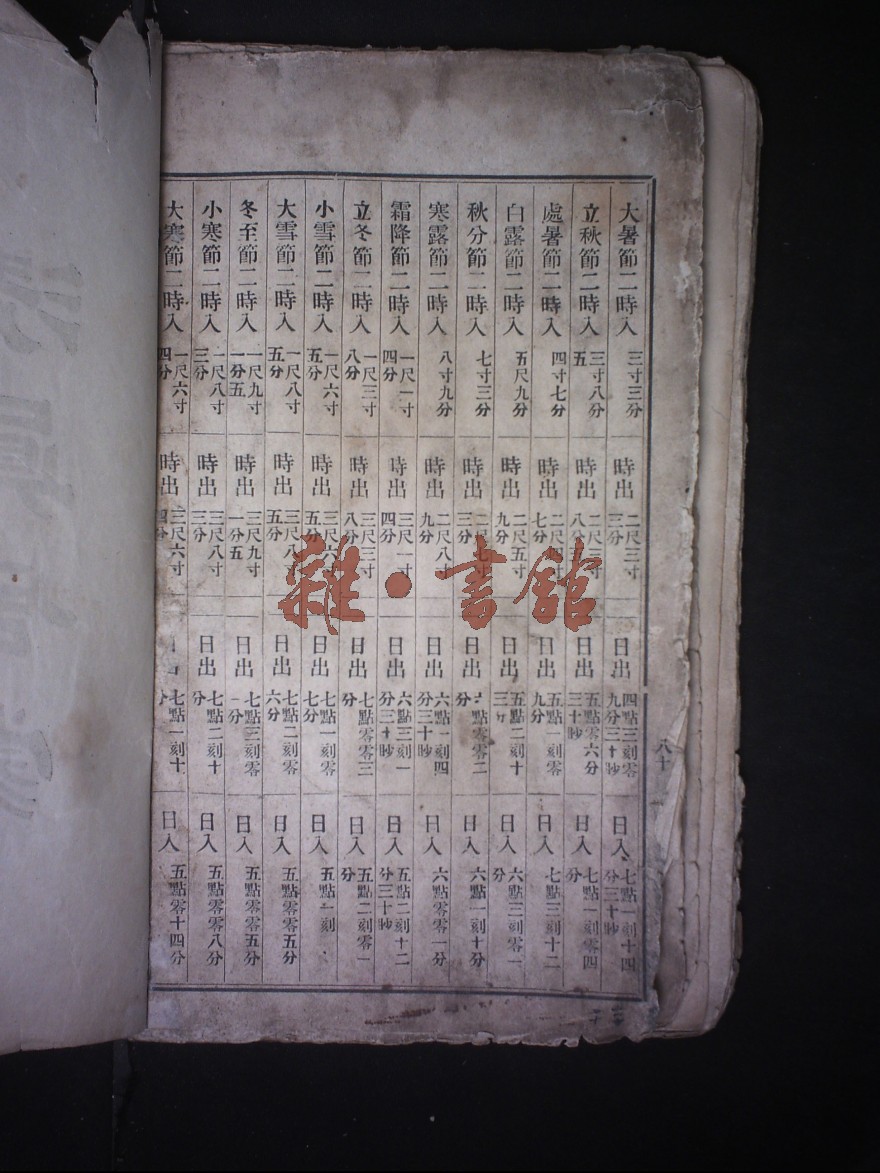 大暑節二時入 三寸三分 時出 二尺三寸三分 日出 四點三刻零九分三十眇 日入 七點一刻十四分三十眇
立秋節二時入 三寸八分五 時出 二尺三寸八分五 日出 五點零六分三十眇 日入 七點一刻零四分
處暑節二時入 四寸七分 時出 二尺四寸七分 日出 五點一刻零九分 日入 七點三刻十二
白露節二時入 五尺九分 時出 二尺五寸九分 日出 五點二刻十三分 日入 六點三刻零一分
秋分節二時入 七寸三分 時出 二尺七寸三分 日出 點零零二分 日入 六點一刻十分
寒露節二時入 八寸九分 時出 二尺八寸九分 日出 六點一刻四分三十眇 日入 六點零零一分
霜降節二時入 一尺一寸四分 時出 三尺一寸四分 日出 六點三刻一分三十眇 日入 五點二刻十二分三十眇
立冬節二時入 一尺三寸八分 時出 三尺三寸八分 日出 七點零零三分 日入 五點二刻零一分
小雪節二時入 一尺六寸五分 時出 三尺六寸五分 日出 七點一刻零七分 日入 五點一刻
大雪節二時入 一尺八寸五分 時出 三尺八寸五分 日出 七點二刻零六分 日入 五點零零五分
冬至節二時入 一尺九寸一分五 時出 三尺九寸一分五 日出 七點三刻零一分 日入 五點零零五分
小寒節二時入 一尺八寸三分 時出 三尺八寸三分 日出 七點二刻十分 日入 五點零零八分
大寒節二時入 一尺六寸四分 時出 三尺六寸四分 日 七點一刻十分 日入 五點零十四分
八十
雜·書館